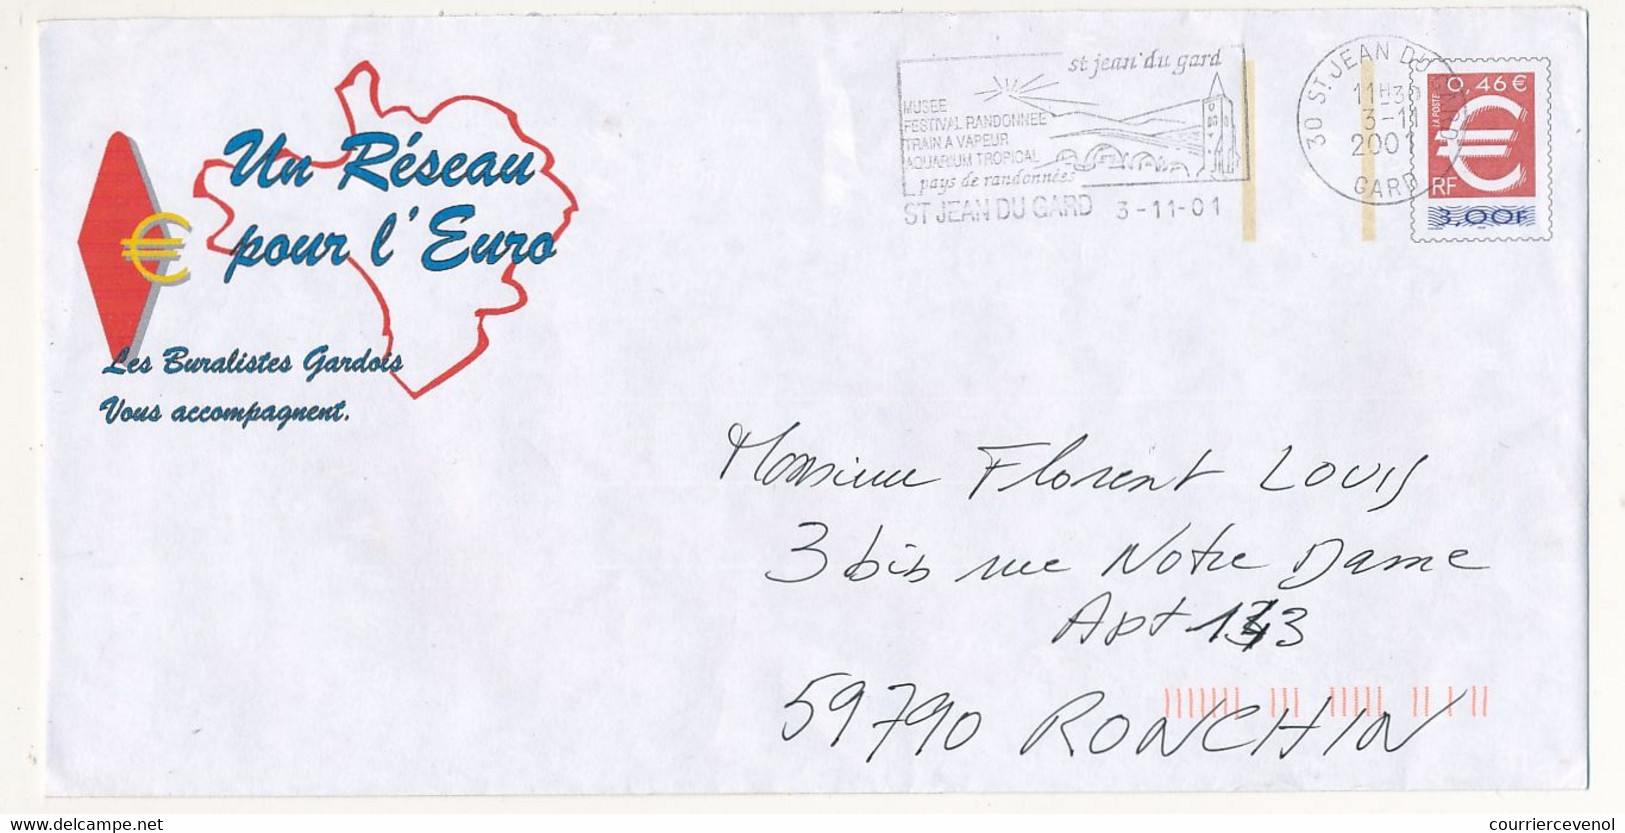 Un Réseau
pour l'Euro
€
Les Buralistes Gardois
Vous accompagnent.
st jean du gard
MUSEE
FESTIVAL RANDONNEE
TRAIN A VAPEUR
AQUARIUM TROPICAL
pays de randonnées
ST JEAN DU GARD 3-11-01
30 ST JEAN DU GARD
11H30
3-11
2001
GARD
0,46 €
LA POSTE
€
RF
3,00F
Monsieur Florent LOUIS
3 bis rue Notre Dame
Apt
59790 RONCHIN
www.delcampe.net
courriercevenol